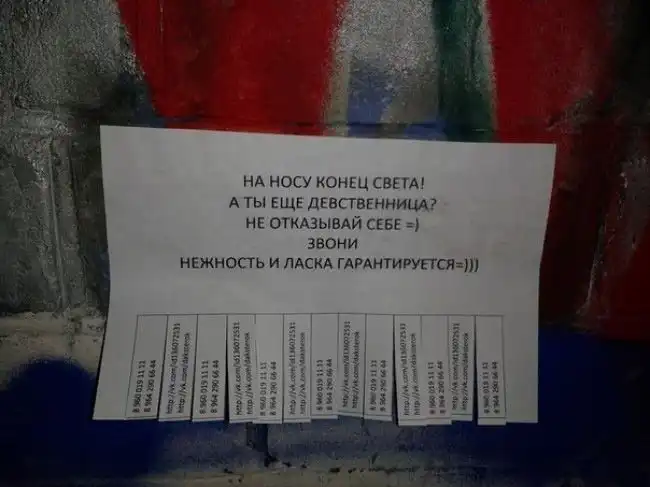 НА НОСУ КОНЕЦ СВЕТА!
А ТЫ ЕЩЕ ДЕВСТВЕННИЦА?
НЕ ОТКАЗЫВАЙ СЕБЕ =)
ЗВОНИ
НЕЖНОСТЬ И ЛАСКА ГАРАНТИРУЕТСЯ=)))
8 960 019 11 11
8 964 290 66 44
http://vk.com/id136072531
http://vk.com/daksterok
8 960 019 11 11
8 964 290 66 44
http://vk.com/id136072531
http://vk.com/daksterok
8 960 019 11 11
8 964 290 66 44
http://vk.com/id136072531
http://vk.com/daksterok
8 960 019 11 11
8 964 290 66 44
http://vk.com/id136072531
http://vk.com/daksterok
8 960 019 11 11
8 964 290 66 44
http://vk.com/id136072531
http://vk.com/daksterok
8 960 019 11 11
8 964 290 66 44
http://vk.com/id136072531
http://vk.com/daksterok
8 960 019 11 11
8 964 290 66 44